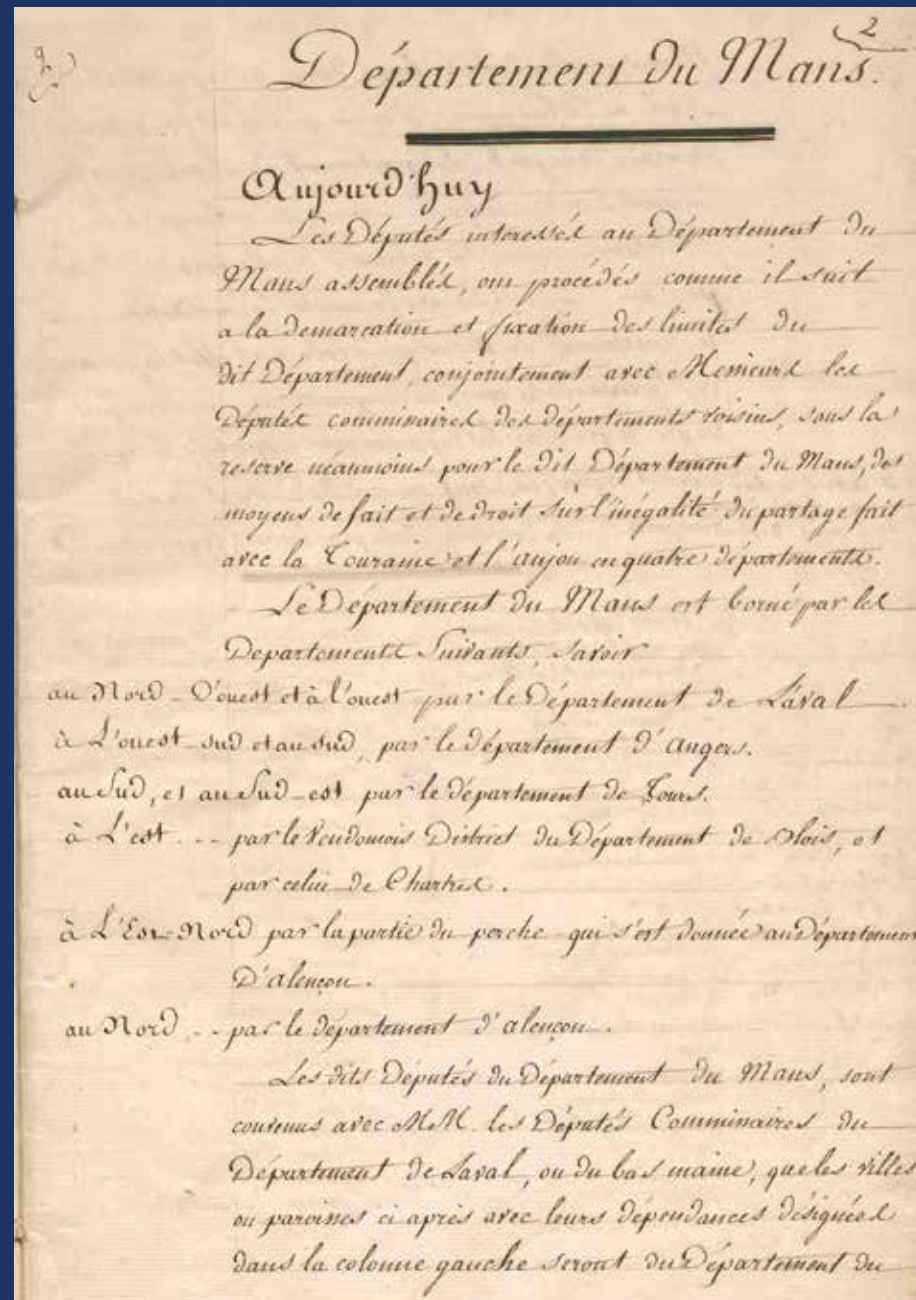 2
2
Département du Mans.
Aujourd'huy
Les Députés interessés au Département du
Mans assemblés, ont procédés comme il suit
a la demarcation et fixation des limites du
dit Département, conjointement avec Messieurs les
Députés commissaires des départements voisins, sous la
reserve néanmoins pour le dit Département du Mans, des
moyens de fait et de droit sur l'inégalité du partage fait
avec la Touraine et l'anjou en quatre départements.
Le Département du Mans est borné par les
Departements Suivants, Savoir
au Nord-D'ouest et à l'ouest par le Département de Laval
à L'ouest-sud et au sud, par le département d'angers.
au Sud, et au Sud-est par le département de Tours.
à L'est... par le Vendomois District du Département de Blois, et
par celui de Chartres.
à L'Est-Nord par la partie du perche qui s'est donnée au Département
D'alençon.
au Nord... par le département d'alençon.
Les dits Députés du Département du Mans, sont
convenus avec MM. les Députés Commissaires du
Département de Laval, ou du bas maine, que les villes
ou paroisses ci après avec leurs dépendances désignées
dans la colonne gauche seront du Département du